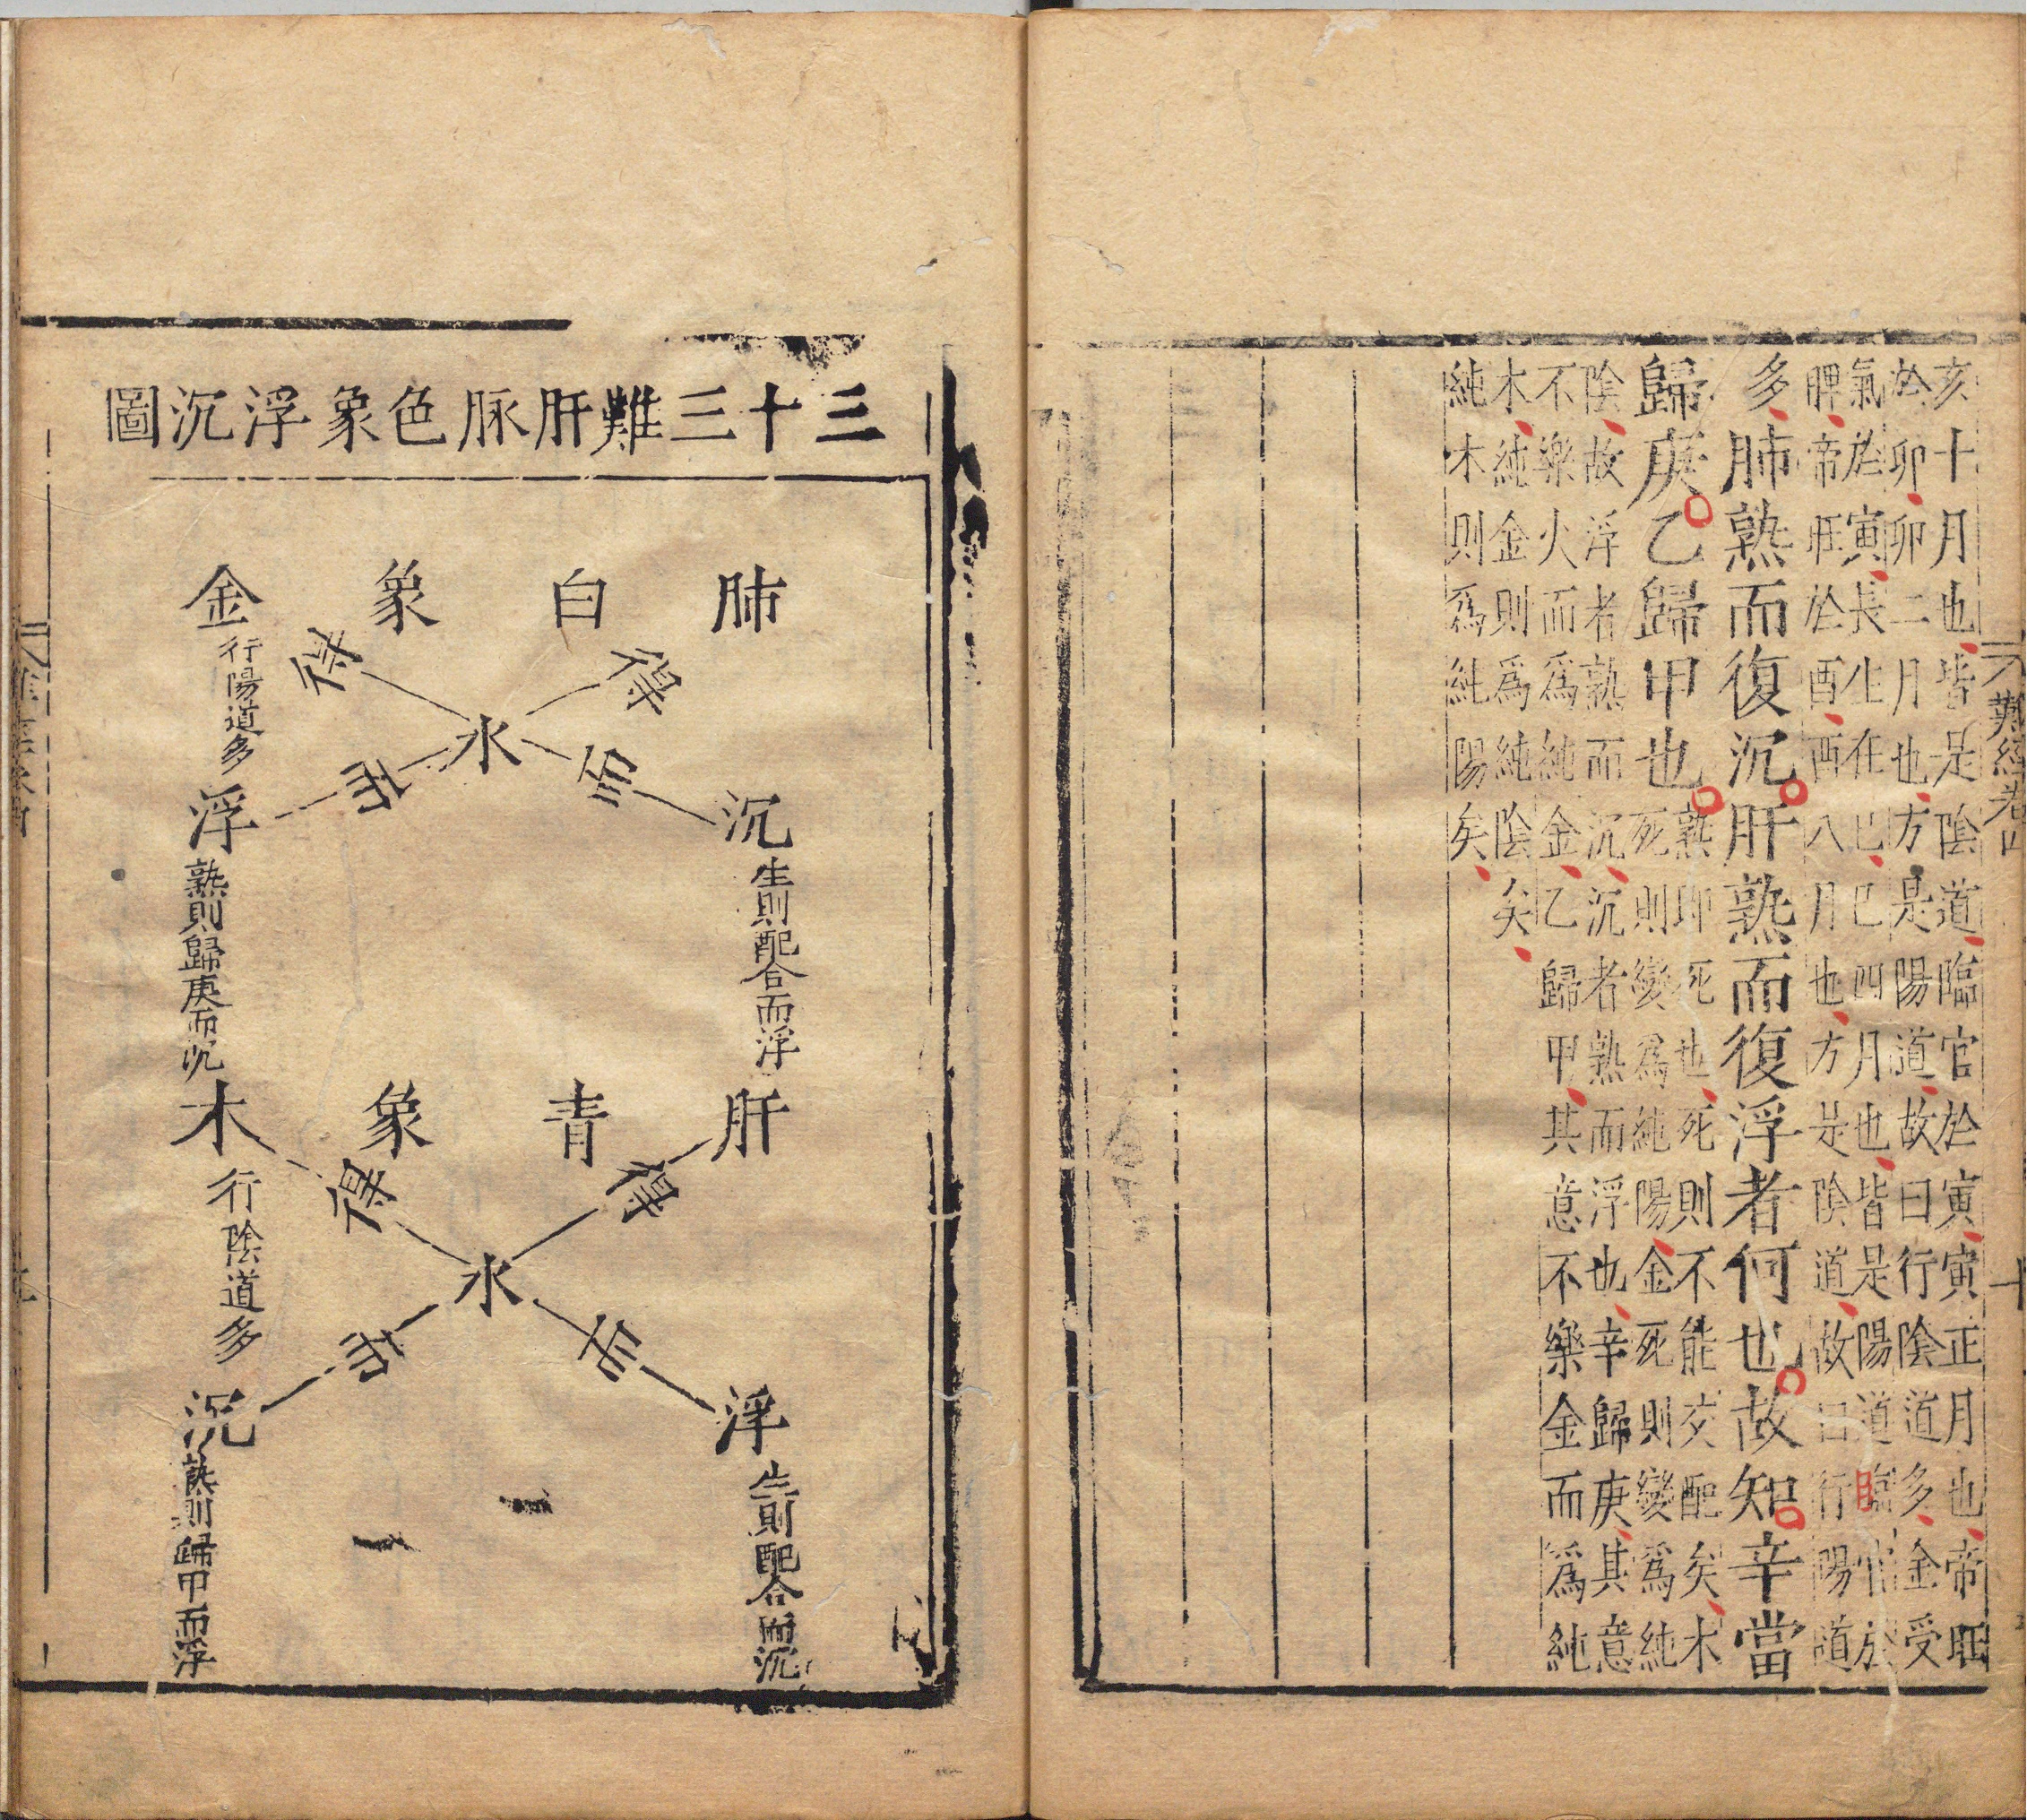 亥十月也皆是陰道臨官於寅寅正月也帝旺
於卯卯二月也方是陽道故曰行陰道多金受
氣於寅長生在巳巳四月也皆是陽道臨官於
脾帝旺於酉酉八月也方是陰道故曰行陽道
多肺熟而復沉肝熟而復浮者何也故知辛當
歸庚乙歸甲也
熟即死也死則不能交配矣木
死則變爲純陽金死則變爲純
陰故浮者熟而沉沉者熟而浮也辛歸庚其意
不樂火而爲純金乙歸甲其意不樂金而爲純
木純金則爲純陰矣
純木則爲純陽矣
難經卷四
十
三十三難肝脉色象浮沉圖
肺白象金
行陽道多
得
得
水
苦
苦
沉
生則配合而浮
浮
熟則歸庚而沉
肝青象木
行陰道多
得
得
水
浮
生則配合而沉
沉
熟則歸甲而浮